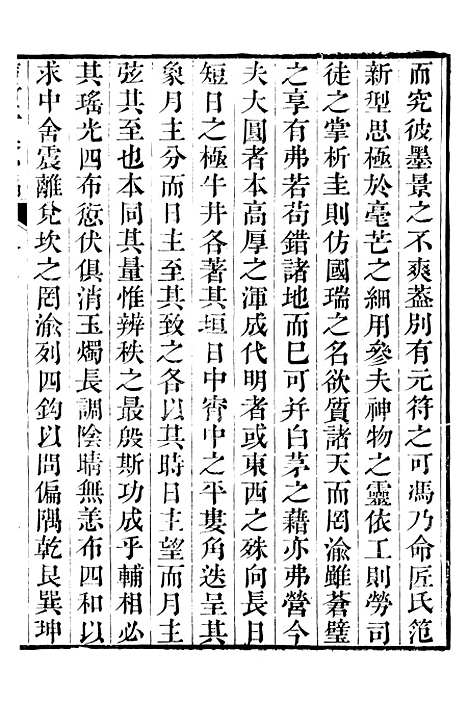 而究彼墨景之不爽葢别有元符之可馮乃命匠氏范
新型思極於毫芒之細用參夫神物之靈依工則勞司
徒之掌析圭則仿國瑞之名欲質諸天而罔渝雖蒼璧
之享有弗若苟錯諸地而巳可并白茅之藉亦弗營今
夫大圓者本高厚之渾成代明者或東西之殊向長日
短日之極牛井各著其垣日中宵中之平婁角迭呈其
象月主分而日主至其致之各以其時日主望而月主
弦其至也本同其量惟辨秩之最殷斯功成乎輔相必
其瑤光四布愆伏俱消玉燭長調陰晴無恙布四和以
求中舍震離兌坎之罔渝列四鈞以問偏隅乾艮巽坤